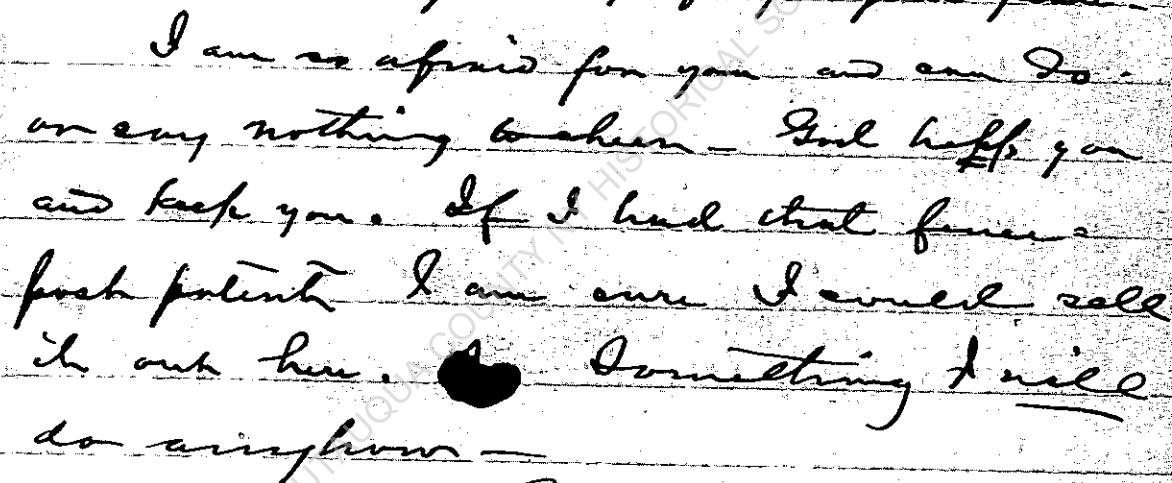 I am so afraid for you and can do
or say nothing to cheer — God help you
and keep you. If I had that fence-
post patent I am sure I could sell
it out here. Something I will
do anyhow —